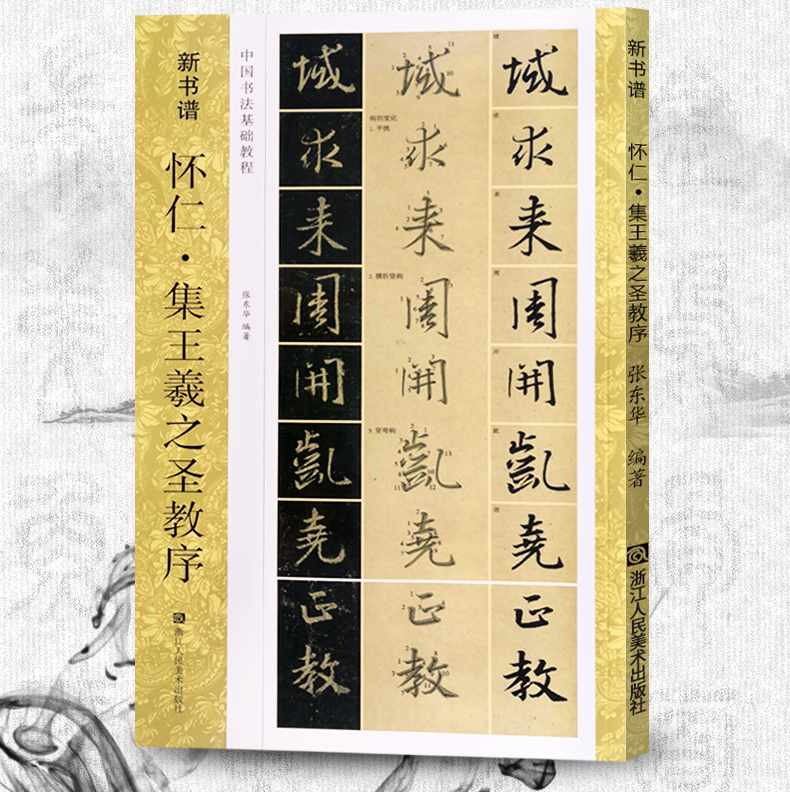 新书谱
怀仁·集王羲之圣教序
浙江人民美术出版社
中国书法基础教程
张东华 编著
域 域 域
钩的变化
1. 平挑
求 求 求
来 来 来
2. 横折竖钩
周 周 周
開 開 開
3. 竖弯钩
凱 凱 凱
堯 堯 堯
正 正 正
教 教 教
新书谱
怀仁·集王羲之圣教序
张东华 编著
浙江人民美术出版社